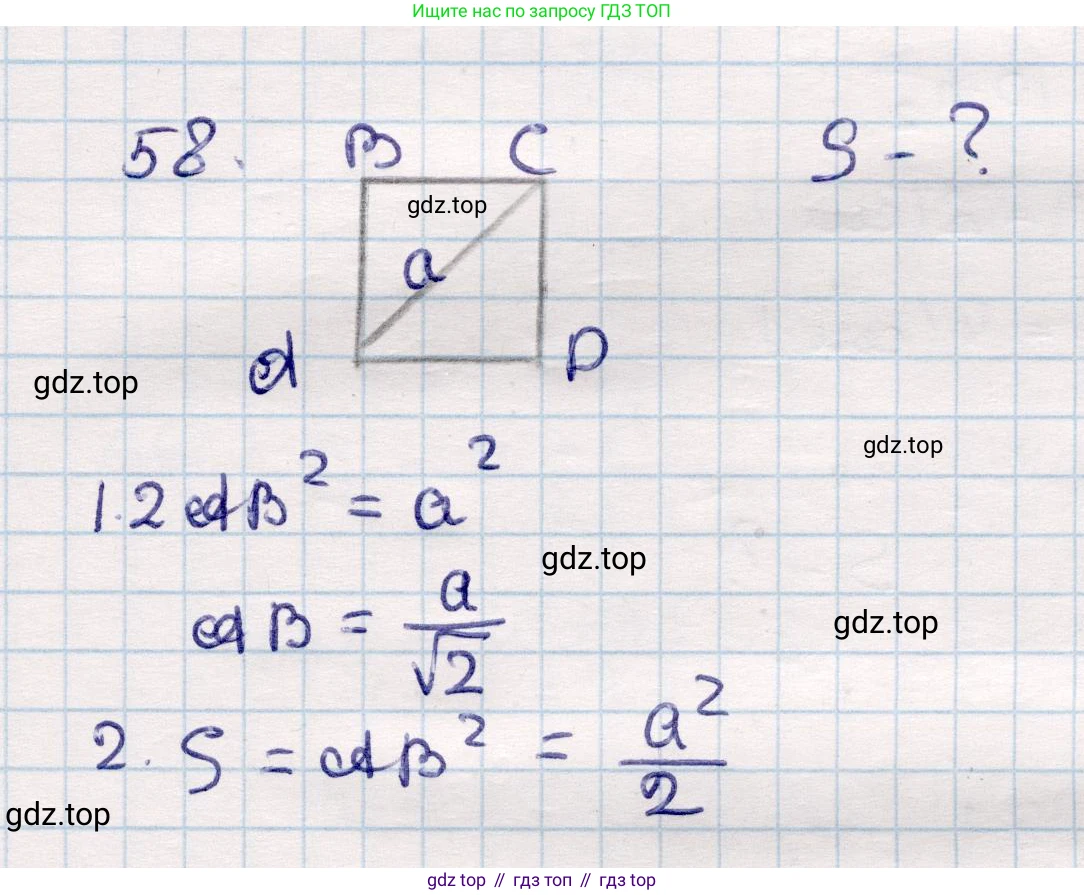 Ищите нас по запросу ГДЗ ТОП
58. B C S - ?
gdz.top
a
A D
gdz.top
gdz.top
1. 2AB² = a²
gdz.top
AB = a/√2
gdz.top
2. S = AB² = a²/2
gdz.top
gdz top // гдз топ // гдз top